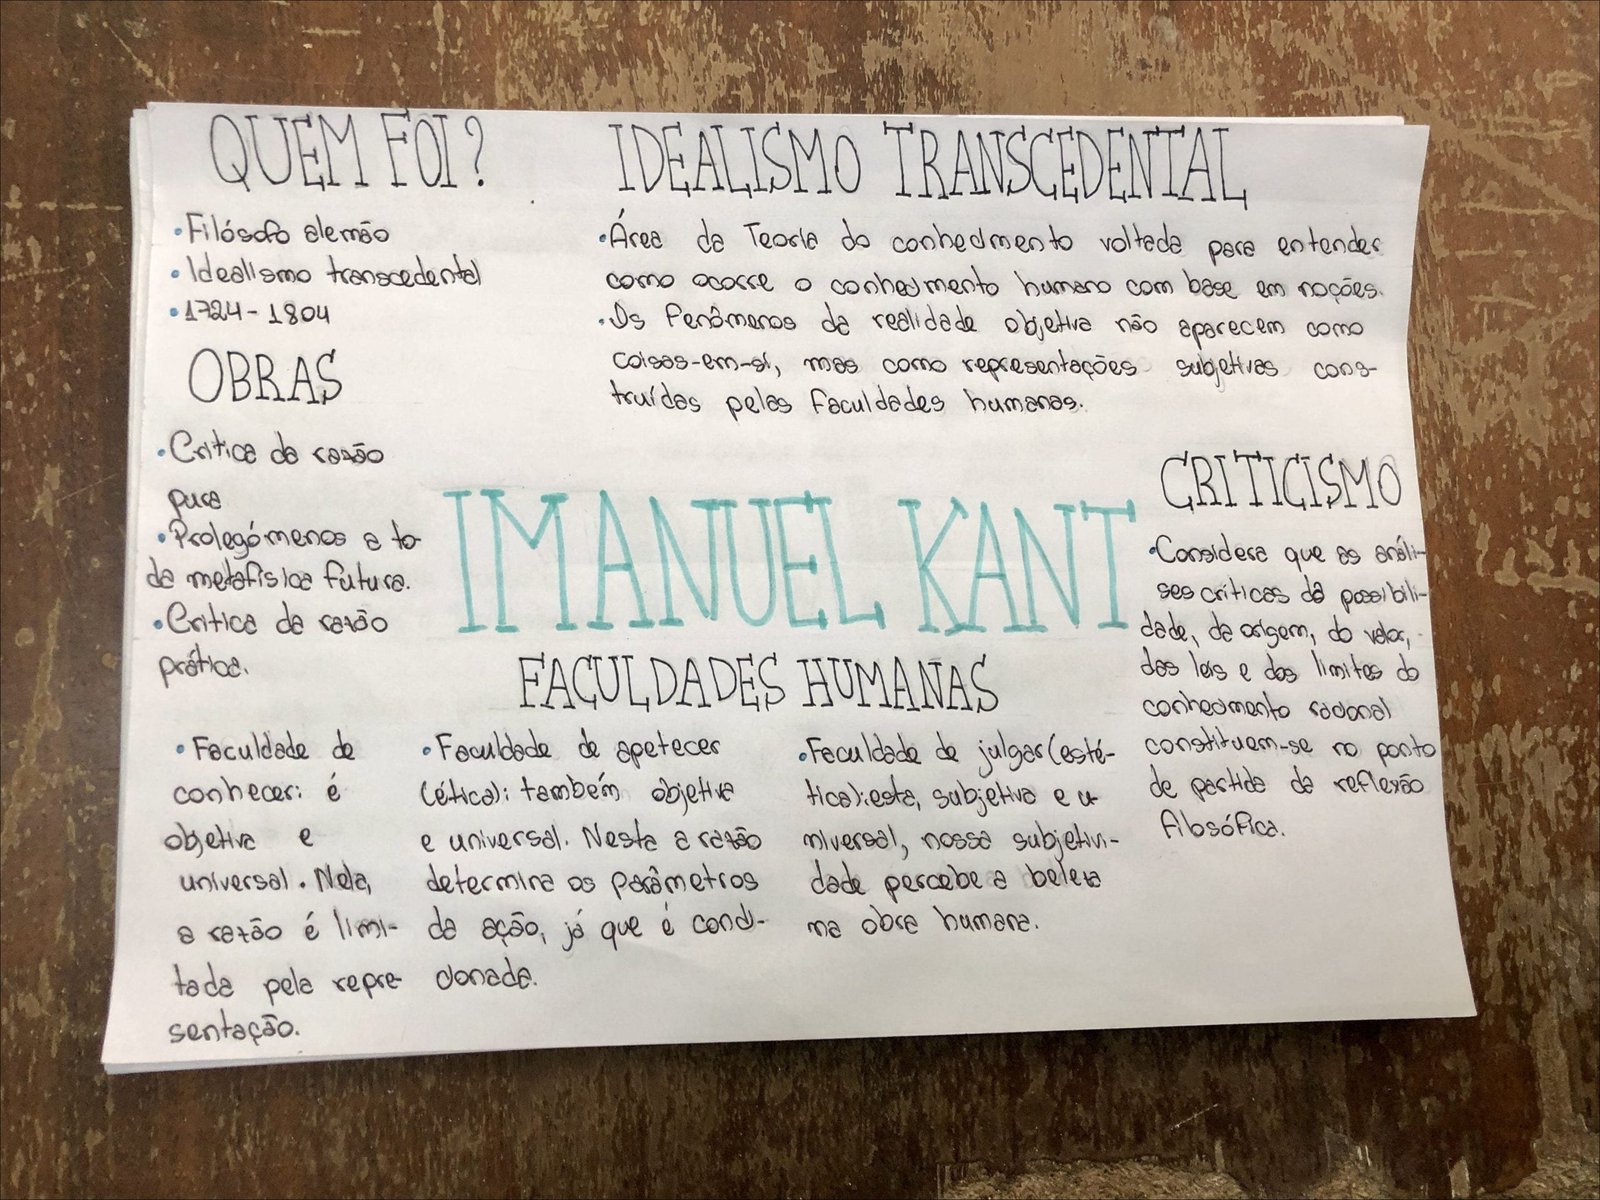 QUEM FOI?
• Filósofo alemão
• Idealismo transcedental
• 1724 - 1804
OBRAS
• Critica da razão
pura
• Prolegómenos a to-
da metafísica futura.
• Critica da razão
prática.
IDEALISMO TRANSCEDENTAL
• Área da Teoria do conhecimento voltada para entender
como ocorre o conhecimento humano com base em noções.
• Os fenômenos da realidade objetiva não aparecem como
coisas-em-sí, mas como representações subjetivas cons-
truídas pelas faculdades humanas.
IMANUEL KANT
CRITICISMO
• Considera que as análi-
ses críticas da possibili-
dade, da origem, do valor,
das leis e dos limites do
conhecimento racional
constituem-se no ponto
de partida da reflexão
filosófica.
FACULDADES HUMANAS
• Faculdade de
conhecer: é
objetiva e
universal. Nela,
a razão é limi-
tada pela repre-
sentação.
• Faculdade de apetecer
(ética): também objetiva
e universal. Nesta a razão
determina os parâmetros
da ação, já que é condi-
cionada.
• Faculdade de julgar (esté-
tica): esta, subjetiva e u-
niversal, nossa subjetivi-
dade percebe a beleza
na obra humana.